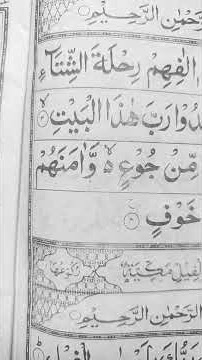 حْمٰنِ الرَّحِيْمِ
اٖلٰفِهِمْ رِحْلَةَ الشِّتَآءِ
بُدُوْا رَبَّ هٰذَا الْبَيْتِ ۙ۳
مِّنْ جُوْعٍ ۙ۬ وَّاٰمَنَهُمْ
خَوْفٍ
مَكِّيَّةٌ
الرَّحْمٰنِ الرَّحِيْمِ